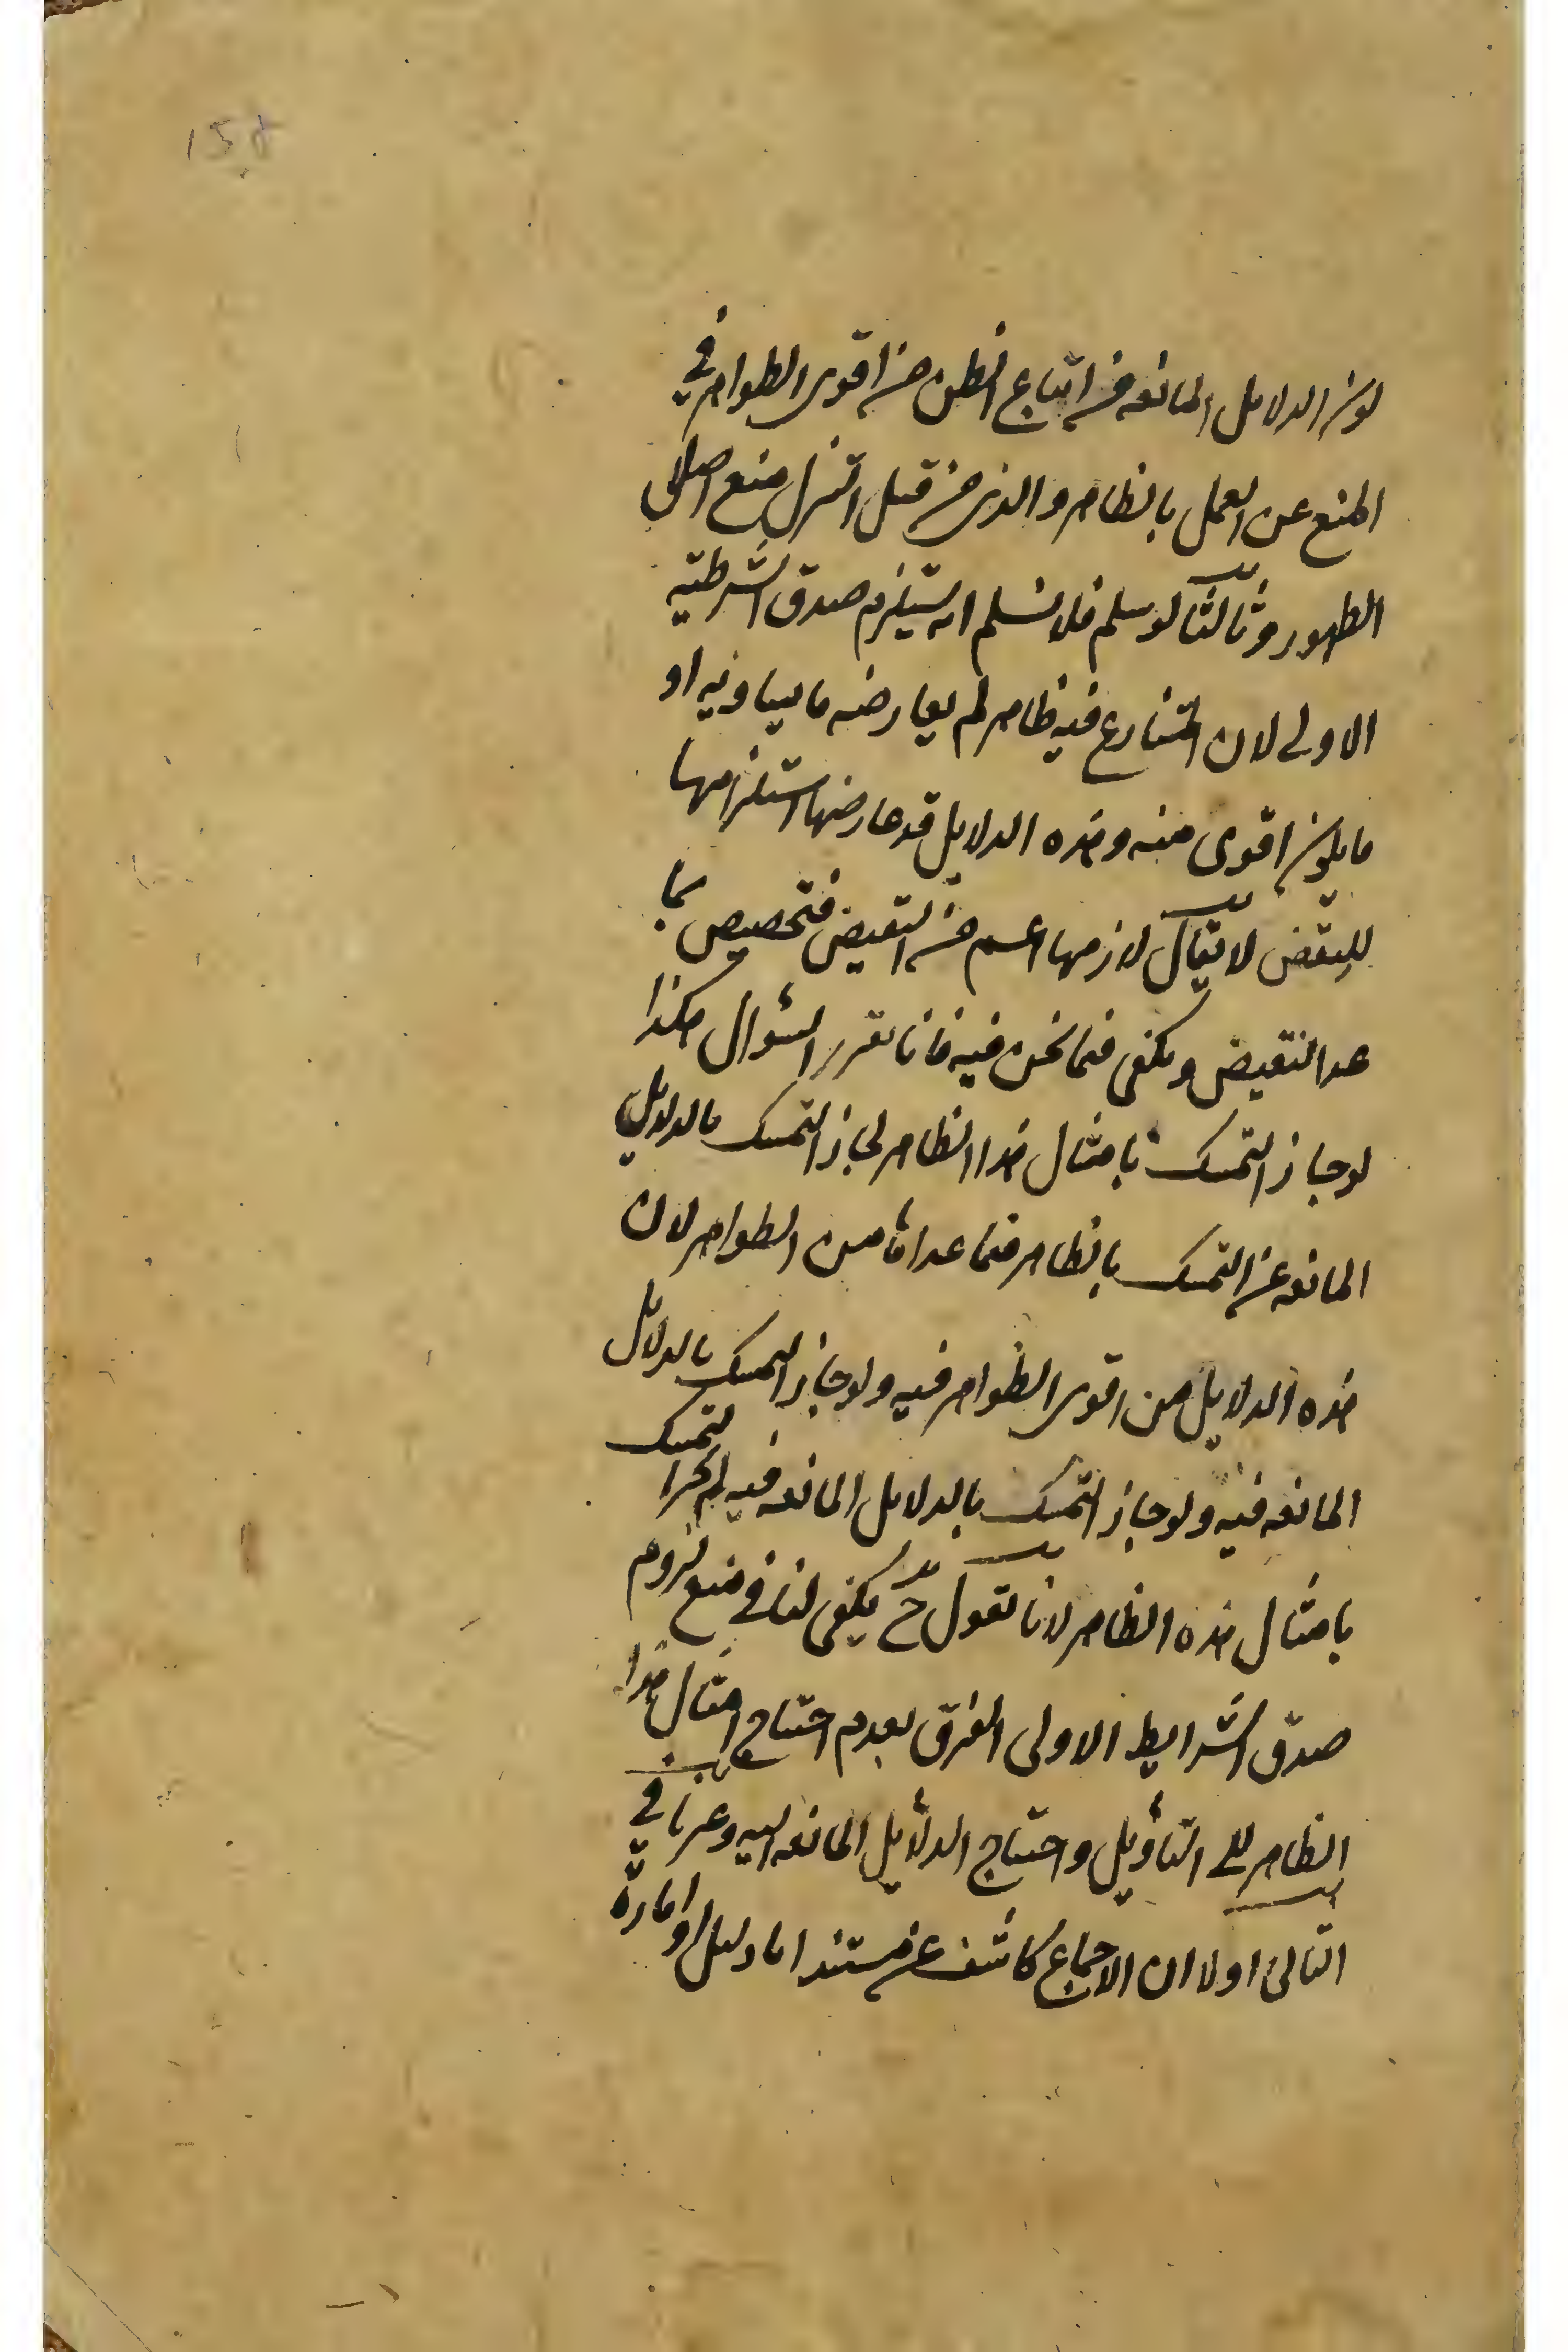 158
كون الدلايل المانعه من اتباع الظن من اقوى الظواهر في
المنع عن العمل بالظاهر والذى من قبل التنزل منع اصل
الظهور وثالثا لو سلم فلا نسلم انه يستلزم صدق الشرطية
الاولى لان المتنازع فيه ظاهر لم يعارضه ما يساويه او
ما يكون اقوى منه وهذه الدلايل قد عارضها استلزامها
للنقض لا يقال لازمها اعم من النقيض فتخصيص بما
عدا النقيض ويكفى فيما نحن فيه فانا نقرر السؤال هكذا
لو جاز التمسك بامثال هذا الظاهر لجاز التمسك بالدلايل
المانعه عن التمسك بالظاهر فيما عداها من الظواهر لان
هذه الدلايل من اقوى الظواهر فيه ولو جاز التمسك بالدلايل
المانعه فيه ولو جاز التمسك بالدلايل المانعه فيه لم يجز التمسك
بامثال هذه الظاهر لانا نقول ح يكفى لنا فى منع لزوم
صدق الشرايط الاولى الفرق بعدم احتياج امثال هذا
الظاهر الى التأويل واحتياج الدلايل المانعه اليه وعرفا فى
الثانى اولا ان الاجماع كاشف عن مستند اما دليل او امارة